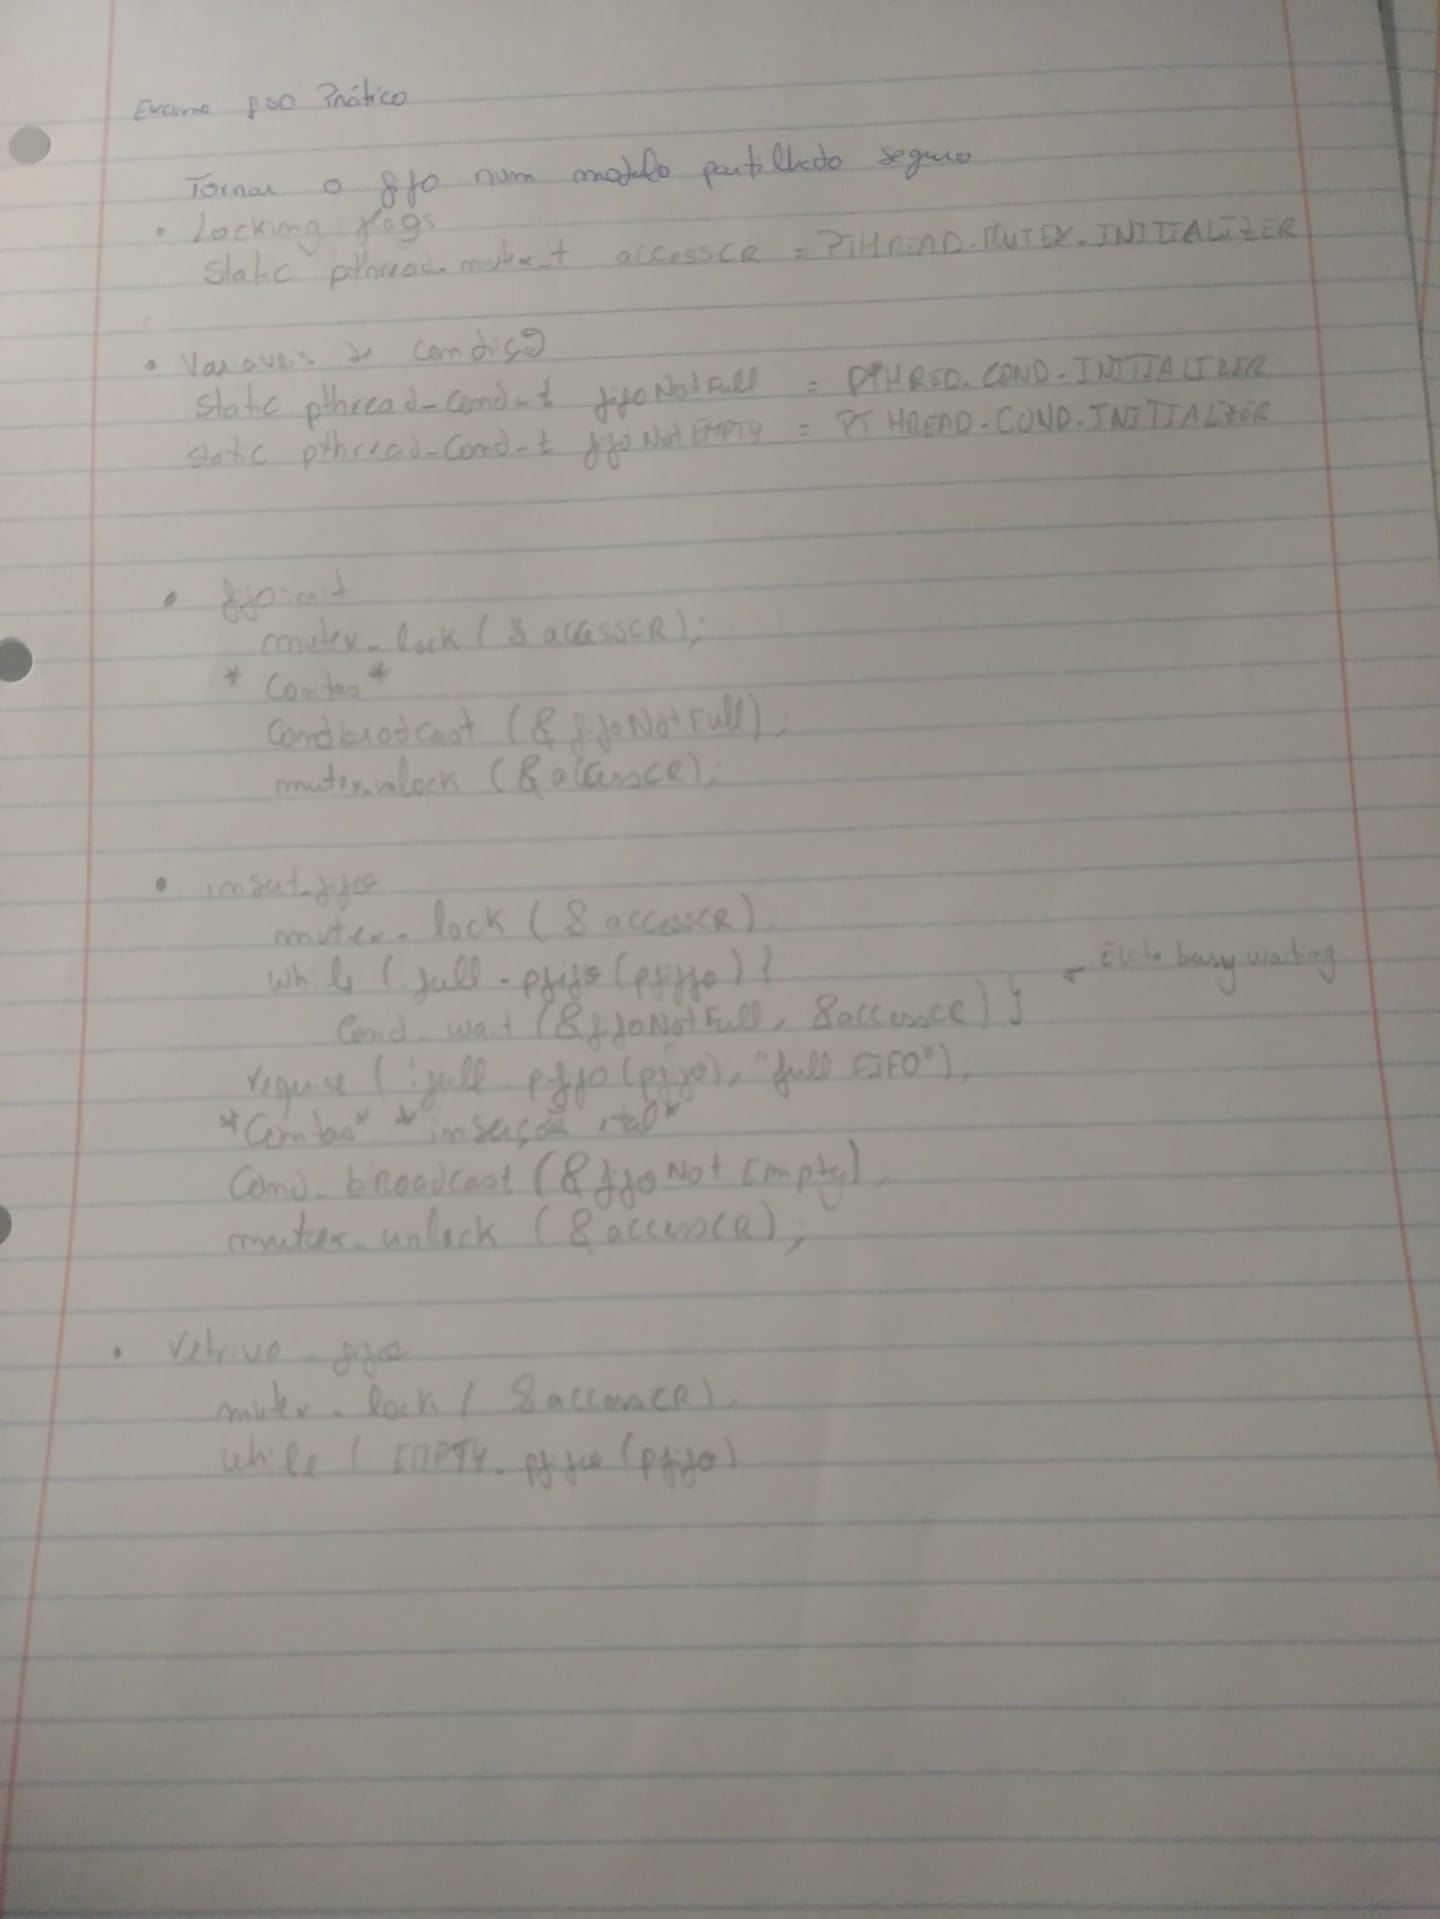 Exame PSO Prático
Tornar o fifo num modelo partilhado seguro
• Locking flags
static pthread_mutex_t accessCR = PTHREAD_MUTEX_INITIALIZER
• Variaveis de condição
static pthread_cond_t fifoNotFull = PTHRED_COND_INITIALIZER
static pthread_cond_t fifoNotEMPTY = PTHREAD_COND_INITIALIZER
• fifo init
mutex_lock (&accessCR);
* Contas *
cond broadcast (&fifoNotFull);
mutex_unlock (&accessCR);
• insert_fifo
mutex_lock (&accessCR)
while (full_pfifo(pfifo)) {
cond_wait (&fifoNotFull, &accessCR) } ← Evita busy waiting
require (!full_pfifo(pfifo), "full FIFO");
*Contas* *inserção e tal*
cond_broadcast (&fifoNotEmpty);
mutex_unlock (&accessCR);
• retrive_fifo
mutex_lock (&accessCR);
while (EMPTY_pfifo (pfifo)